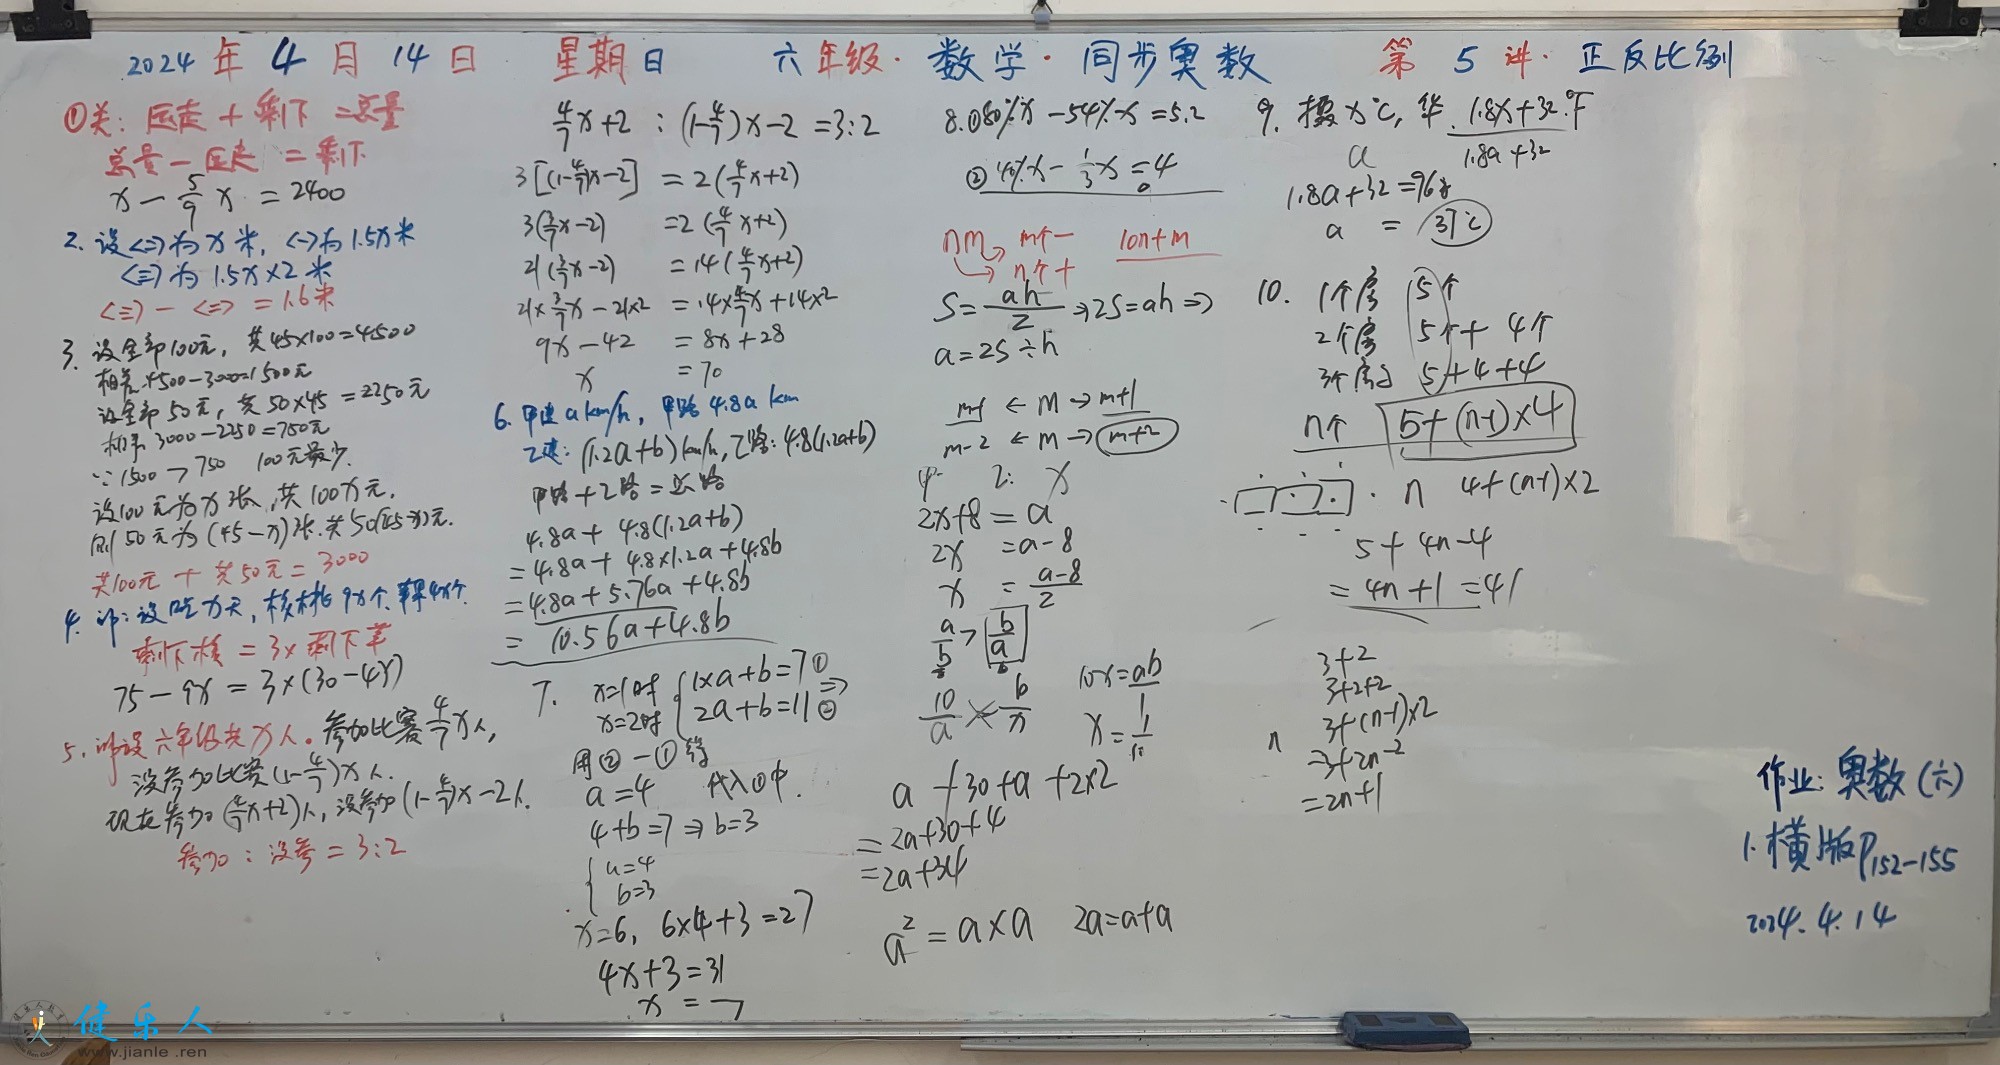 2024年4月14日 星期日 六年级·数学·同步奥数 第5讲·正反比例
①关: 已走+剩下=总量
总量-已走=剩下
x-5/9x=2400
2. 设<=>为x米, <->为1.5x米
<≡>为1.5x×2米
<≡>-<=>=1.6米
3. 设全部100元, 共45×100=4500
相差4500-3000=1500元
设全部50元, 共50×45=2250元
相差3000-2250=750元
∵1500→750 100元最少.
设100元为x张, 共100x元.
则50元为(45-x)张.共50(45-x)元.
共100元+共50元=3000
4. 设吃x天, 核桃9x个, 苹果4x个.
剩下核=3×剩下苹
75-9x=3×(30-4x)
5. 解设六年级共x人。参加比赛4/7x人,
没参加比赛(1-4/7)x人.
现在参加(4/7x+2)人, 没参加(1-4/7)x-2人.
参加:没参=3:2
4/7x+2:(1-4/7)x-2=3:2
3[(1-4/7)x-2]=2(4/7x+2)
3(3/7x-2)=2(4/7x+2)
21(3/7x-2)=14(4/7x+2)
21×3/7x-21×2=14×4/7x+14×2
9x-42=8x+28
x=70
6. 甲速a km/h, 甲路4.8a km
乙速:(1.2a+b)km/h, 乙路:4.8(1.2a+b)
甲路+乙路=总路
4.8a+4.8(1.2a+b)
=4.8a+4.8×1.2a+4.8b
=4.8a+5.76a+4.8b
=10.56a+4.8b
7. x=1时 {1×a+b=7①
x=2时 2a+b=11② ⇒
用②-①得
a=4 代入①中.
4+b=7⇒b=3
{a=4
b=3
x=6, 6×4+3=27
4x+3=31
x=7
8.①80%x-54%x=5.2
②40%x-1/3x=4
nm→m个一 10n+m
→n个十
S=ah/2⇒2S=ah⇒
a=2S÷h
m-1←m→m+1
m-2←m→m+2
甲 乙: x
2x+8=a
2x=a-8
x=(a-8)/2
a/b>b/a
10/a b/x 10x=ab
x=1/10
a+30+a+2×2
=2a+30+4
=2a+34
a²=a×a 2a=a+a
9. 摄x℃, 华 1.8x+32℉
a 1.8a+32
1.8a+32=98.6
a=37℃
10. 1个房 5个
2个房 5个+4个
3个房 5+4+4
n个 5+(n-1)×4
n 4+(n-1)×2
5+4n-4
=4n+1=41
3+2
3+2+2
n 3+(n-1)×2
=3+2n-2
=2n+1
作业: 奥数(六)
1. 横版P152-155
2024.4.14
健乐人
www.jianle.ren